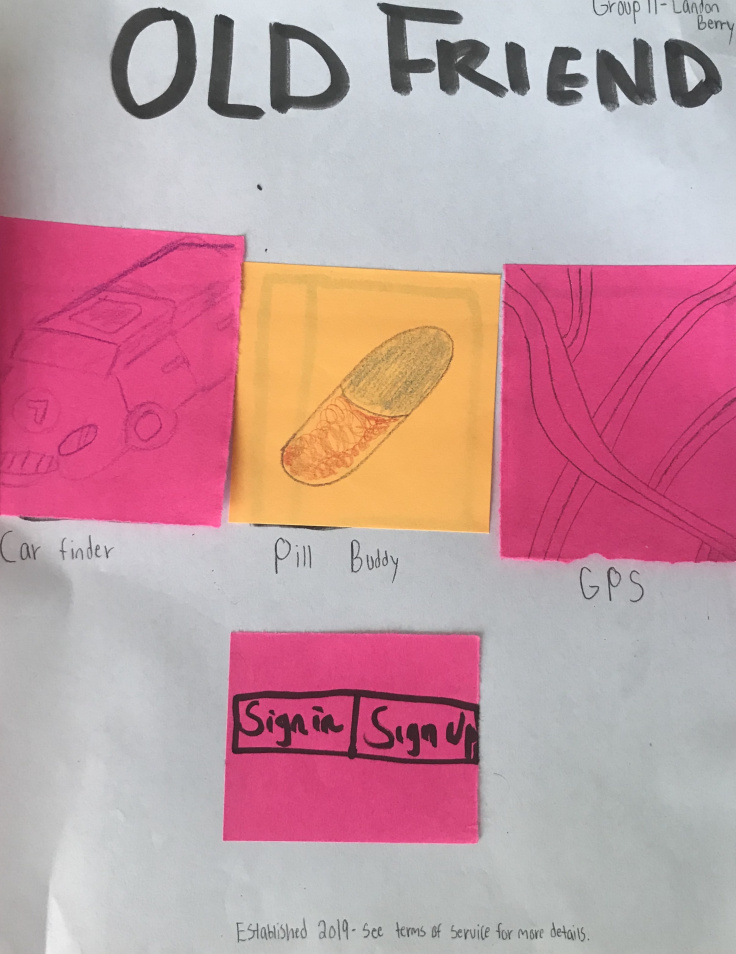 Group 11-Landon
Berry
OLD FRIEND
Car finder
Pill Buddy
GPS
Sign in Sign Up
Established 2019- See terms of service for more details.